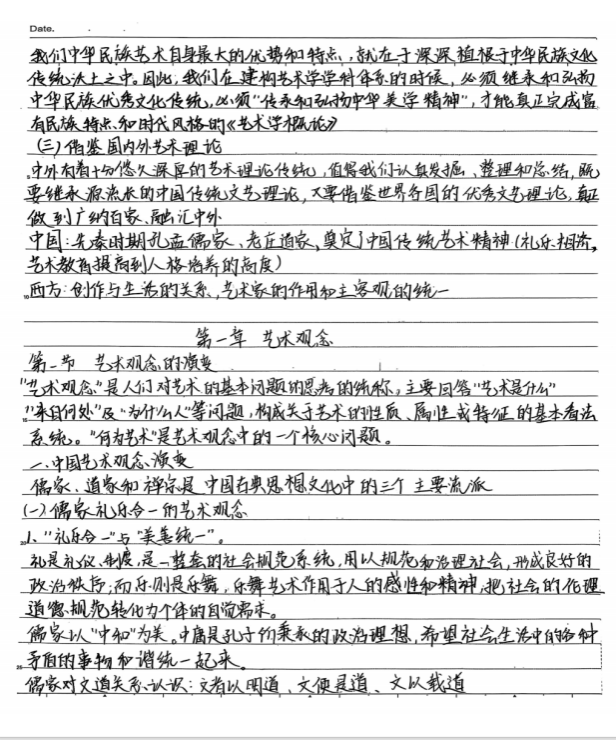 Date.
我们中华民族艺术自身最大的优势和特点，就在于深深植根于中华民族文化
传统沃土之中。因此，我们在建构艺术学学科体系的时候，必须继承和弘扬
中华民族优秀文化传统，必须"传承和弘扬中华美学精神"，才能真正完成富
有民族特点和时代风格的《艺术学概论》
(三)借鉴国内外艺术理论
中外有着十分悠久深厚的艺术理论传统，值得我们认真发掘、整理和总结，既
要继承源流长的中国传统文艺理论，又要借鉴世界各国的优秀文艺理论，真正
做到广纳百家、融汇中外
中国：先秦时期孔孟儒家、老庄道家，奠定了中国传统艺术精神(礼乐相济，
艺术教育提高到人格培养的高度)
10 西方：创作与生活的关系、艺术家的作用和主客观的统一
第一章 艺术观念
第一节 艺术观念的演变
"艺术观念"是人们对艺术的基本问题的思考的统称，主要回答"艺术是什么"
"来自何处"及"为什么人"等问题，构成关于艺术的性质、属性或特征的基本看法
系统。"何为艺术"是艺术观念中的一个核心问题。
一、中国艺术观念演变
儒家、道家和禅宗是中国古典思想文化中的三个主要流派
(一)儒家礼乐合一的艺术观念
20 1、"礼乐合一"与"美善统一"。
礼是礼仪、制度，是一整套的社会规范系统，用以规范和治理社会，形成良好的
政治秩序；而乐则是乐舞，乐舞艺术作用于人的感性和精神，把社会的伦理
道德规范转化为个体的自觉需求。
儒家以"中和"为美。中庸是孔子们秉承的政治理想，希望社会生活中的各种
25 矛盾的事物和谐统一起来。
儒家对文道关系认识：文者以明道、文便是道、文以载道